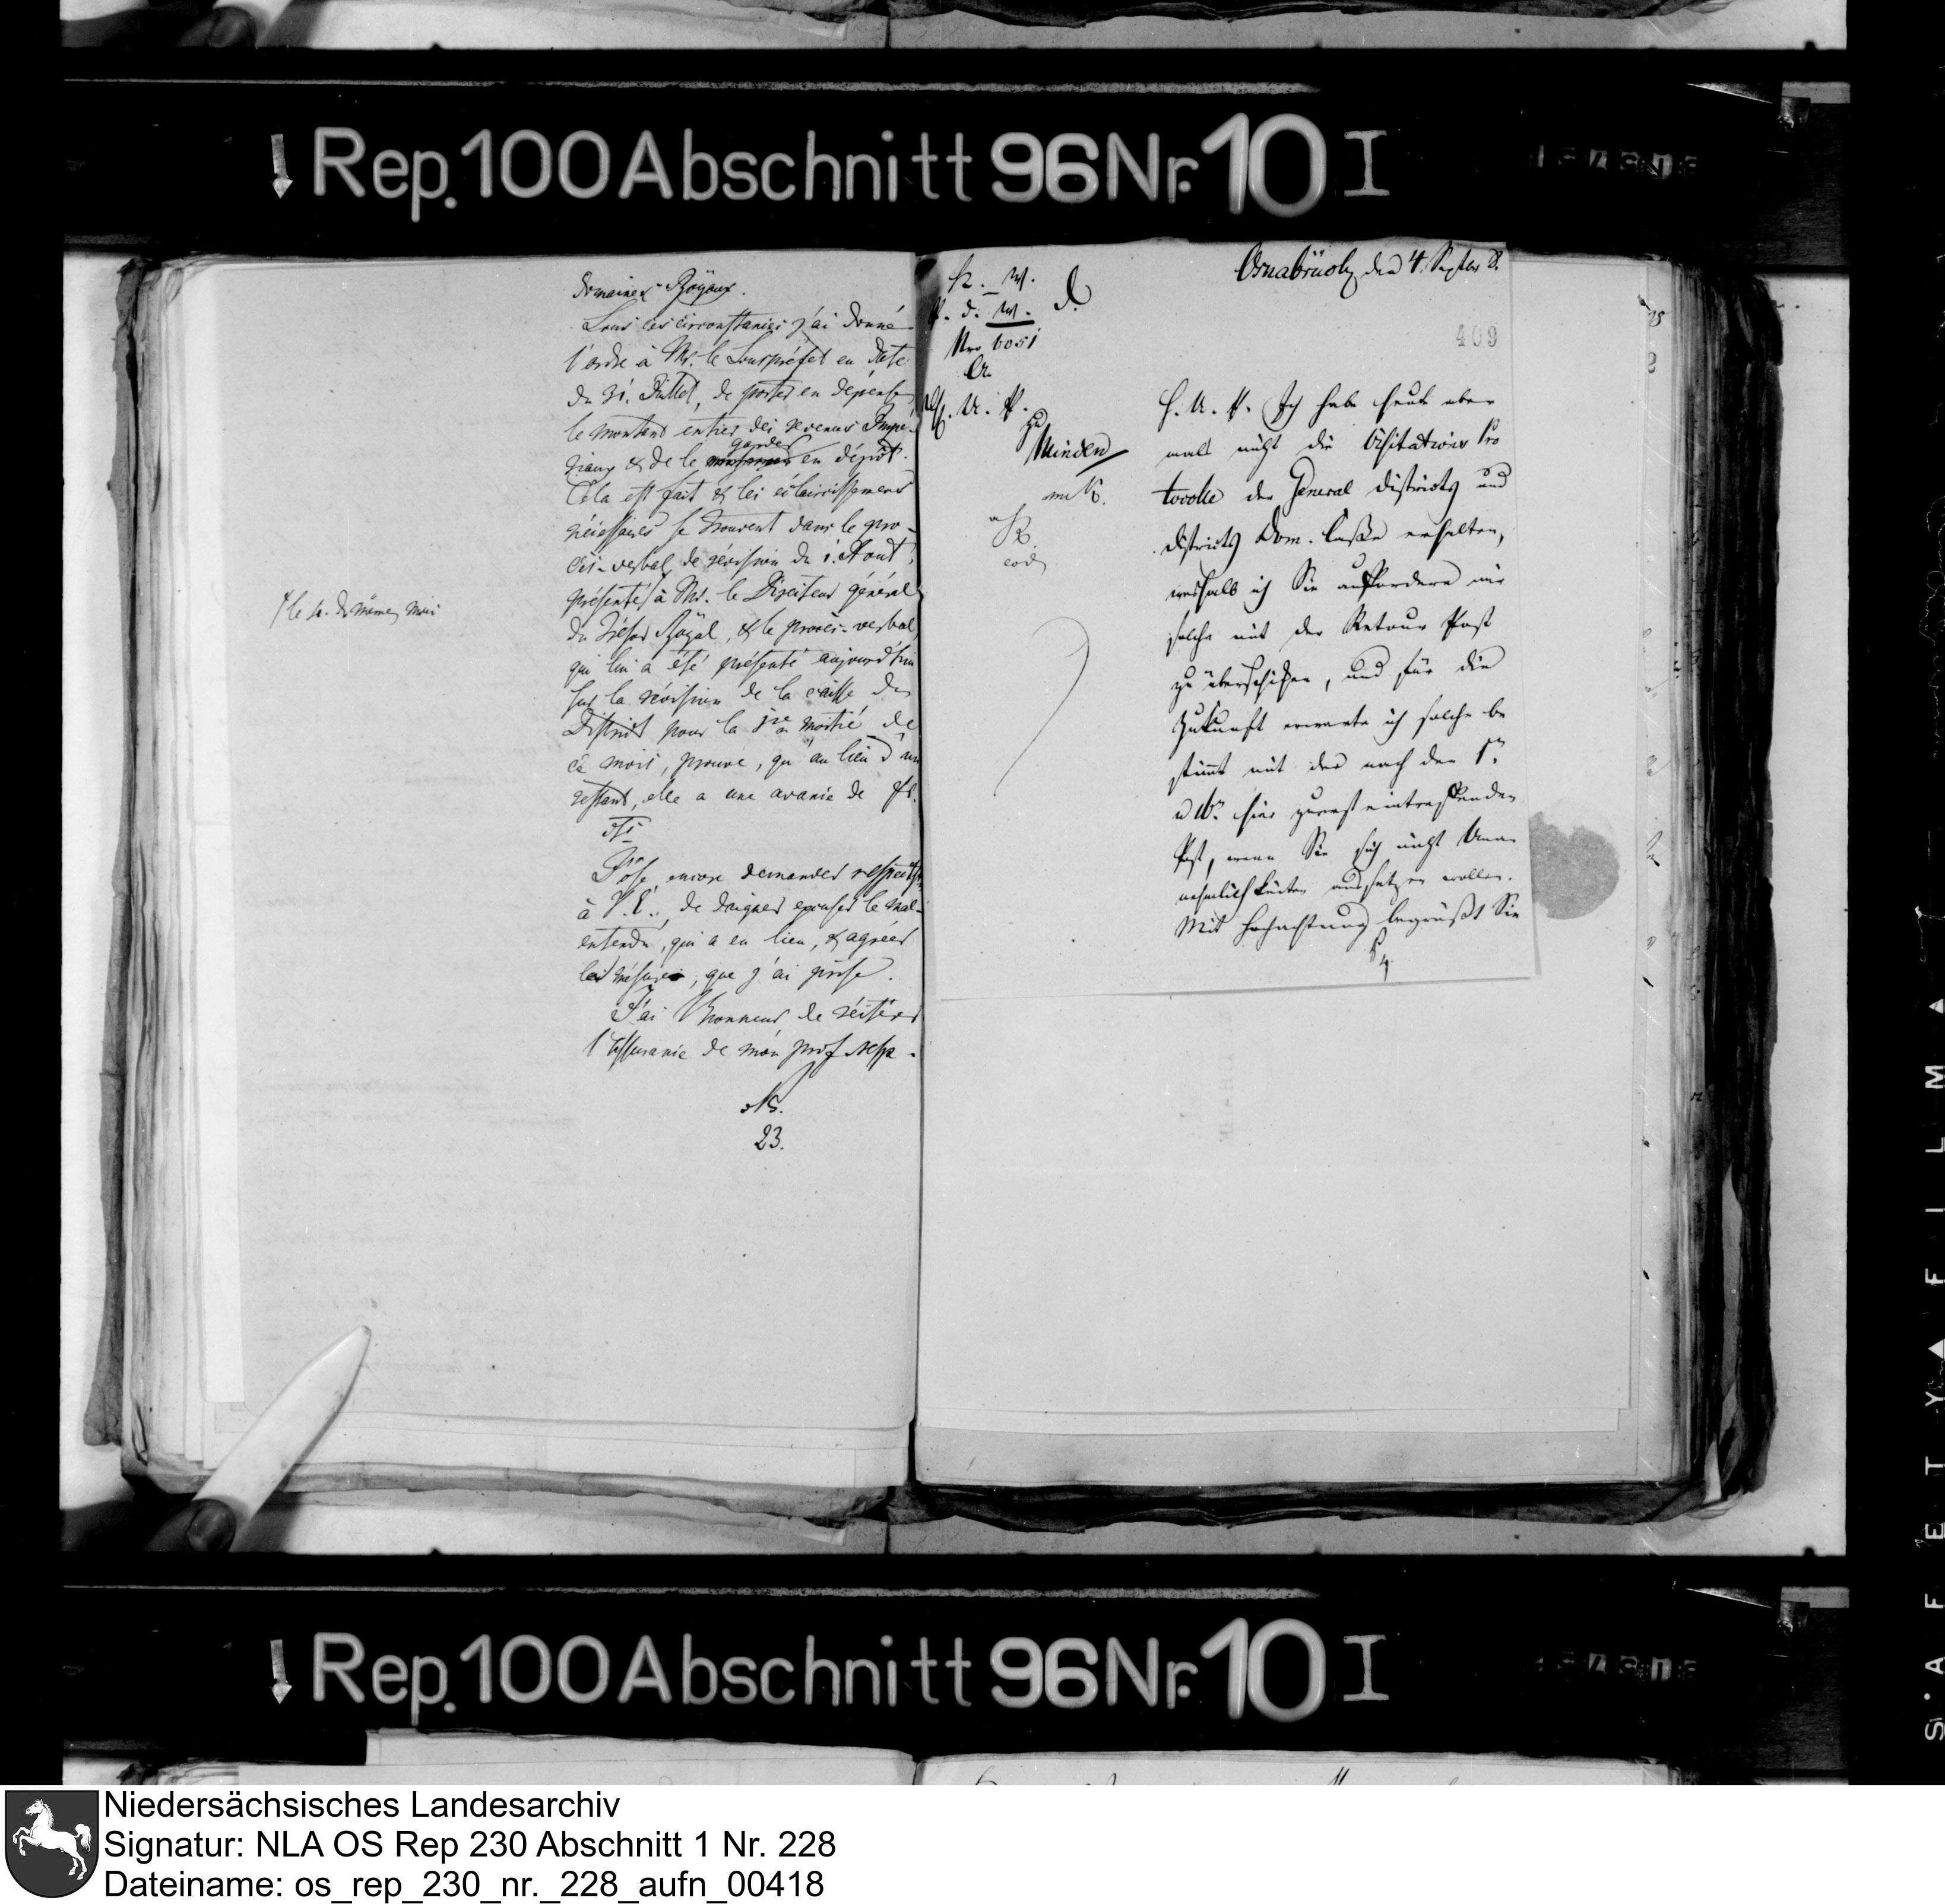 ↓ Rep. 100 Abschnitt 96 Nr. 10 I
Domaines Royaux.
Sous ces circonstances j'ai donné
l'ordre à Mr. le Sousprefet en date
du 31. Juillet, de porter en dépense
le montant entier des revenus Impé-
riaux & de le garder en dépôt.
Cela est fait & les éclaircissemens
nécessaires se trouvent dans le pro-
cès-verbal de révision du 1. Aout,
présenté à Mr. le Directeur général
le 4. du même mois
du Trésor Royal, & le procès-verbal,
qui lui a été présenté aujourd'hui
sur la révision de la caisse du
District pour la 1re moitié de
ce mois, prouve, qu'au lieu d'un
restant, elle a une avance de
J'ose encore demander
à V. E., de daigner excuser le mal-
entendu, qui a eu lieu, & agréer
les mesures, que j'ai prise.
J'ai l'honneur de réitérer
l'assurance de mon prof resp.
23.
Osnabrück den 4. Septbr 8.
K. W.
P. d. W.
Nro 6051
409
U. P.
zu
Minden
eod
H. U. P. Ich habe heute aber
mals nicht die Visitations Pro
tocolle der General Districts und
Districts Dom. Casse erhalten,
weshalb ich Sie auffordere mir
solche mit der Retour Post
zu überschicken, und für die
Zukunft erwarte ich solche be
stimmt mit der nach dem 1n
u 16n hier zuerst eintreffenden
Post, wenn Sie sich nicht Unan
nehmlichkeiten aussetzen wollen.
Mit Hochachtung begrüßt Sie
↓ Rep. 100 Abschnitt 96 Nr. 10 I
SAFETY FILM
Niedersächsisches Landesarchiv
Signatur: NLA OS Rep 230 Abschnitt 1 Nr. 228
Dateiname: os_rep_230_nr._228_aufn_00418